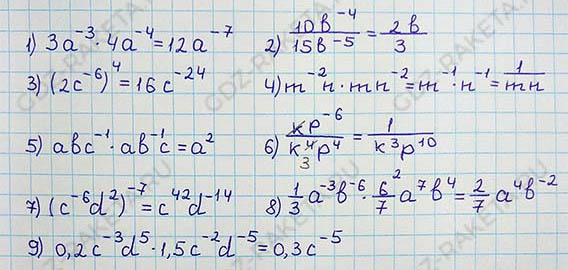 1) 3a⁻³·4a⁻⁴=12a⁻⁷ 2) 10b⁻⁴/15b⁻⁵=2b/3
3) (2c⁻⁶)⁴=16c⁻²⁴ 4) m⁻²n·mn⁻²=m⁻¹·n⁻¹=1/mn
5) abc⁻¹·ab⁻¹c=a² 6) kp⁻⁶/k⁴p⁴ 3=1/k³p¹⁰
7) (c⁻⁶d²)⁻⁷=c⁴²d⁻¹⁴ 8) 1/3a⁻³b⁻⁶·6/7 2 a⁷b⁴=2/7a⁴b⁻²
9) 0,2c⁻³d⁵·1,5c⁻²d⁻⁵=0,3c⁻⁵
GDZ-RAKETA.RU